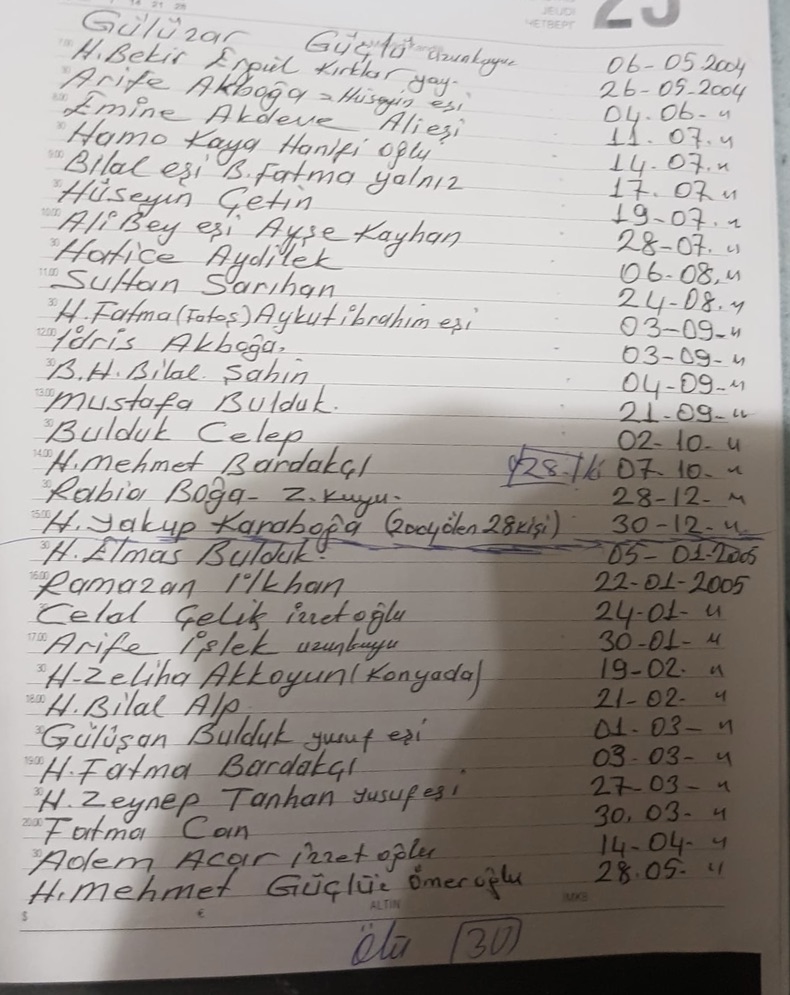 14 21 28
JEUDI
ЧЕТВЕРГ
Gülüzar Güçlü uzunkuyu 06-05.2004
H. Bekir Erpul Kırklar yay. 26-05-2004
Arife Akboğa = Hüseyin eşi 04.06-"
Emine Akdeve Ali eşi 11.07."
Hamo Kaya Hanifi oğlu 14-07."
Bilal eşi B. Fatma yalnız 17.07"
Hüseyin Çetin 19-07."
Ali Bey eşi Ayşe Kayhan 28-07."
Hatice Aydilek 06-08."
Sultan Sarıhan 24-08."
H. Fatma (Fatoş) Aykut ibrahim eşi 03-09-"
İdris Akboğa. 03-09-"
B.H. Bilal. Şahin 04-09-"
Mustafa Bulduk. 21-09-"
Bulduk Celep 02-10-"
H. Mehmet Bardakçı 07.10.-"
Rabia Boğa- Z. kuyu. 28-12-"
H. yakup Karaboğa (2004 ölen 28 kişi) 30-12-"
H. Elmas Bulduk. 05-01-2005
Ramazan İlkhan 22-01-2005
Celal Çelik izzet oğlu 24-01-"
Arife işlek uzunkuyu 30-01-"
H-Zeliha Akkoyun (Konyada) 19-02."
H. Bilal Alp 21-02-"
Gülüşan Bulduk yusuf eşi 01.03-"
H. Fatma Bardakçı 03.03-"
H. Zeynep Tanhan yusuf eşi 27-03-"
Fatma Can 30.03-"
Adem Acar izzet oğlu 14-04-"
H. Mehmet Güçlü Ömer oğlu 28.05-"
$ € ALTIN IMKB
Ölü 30